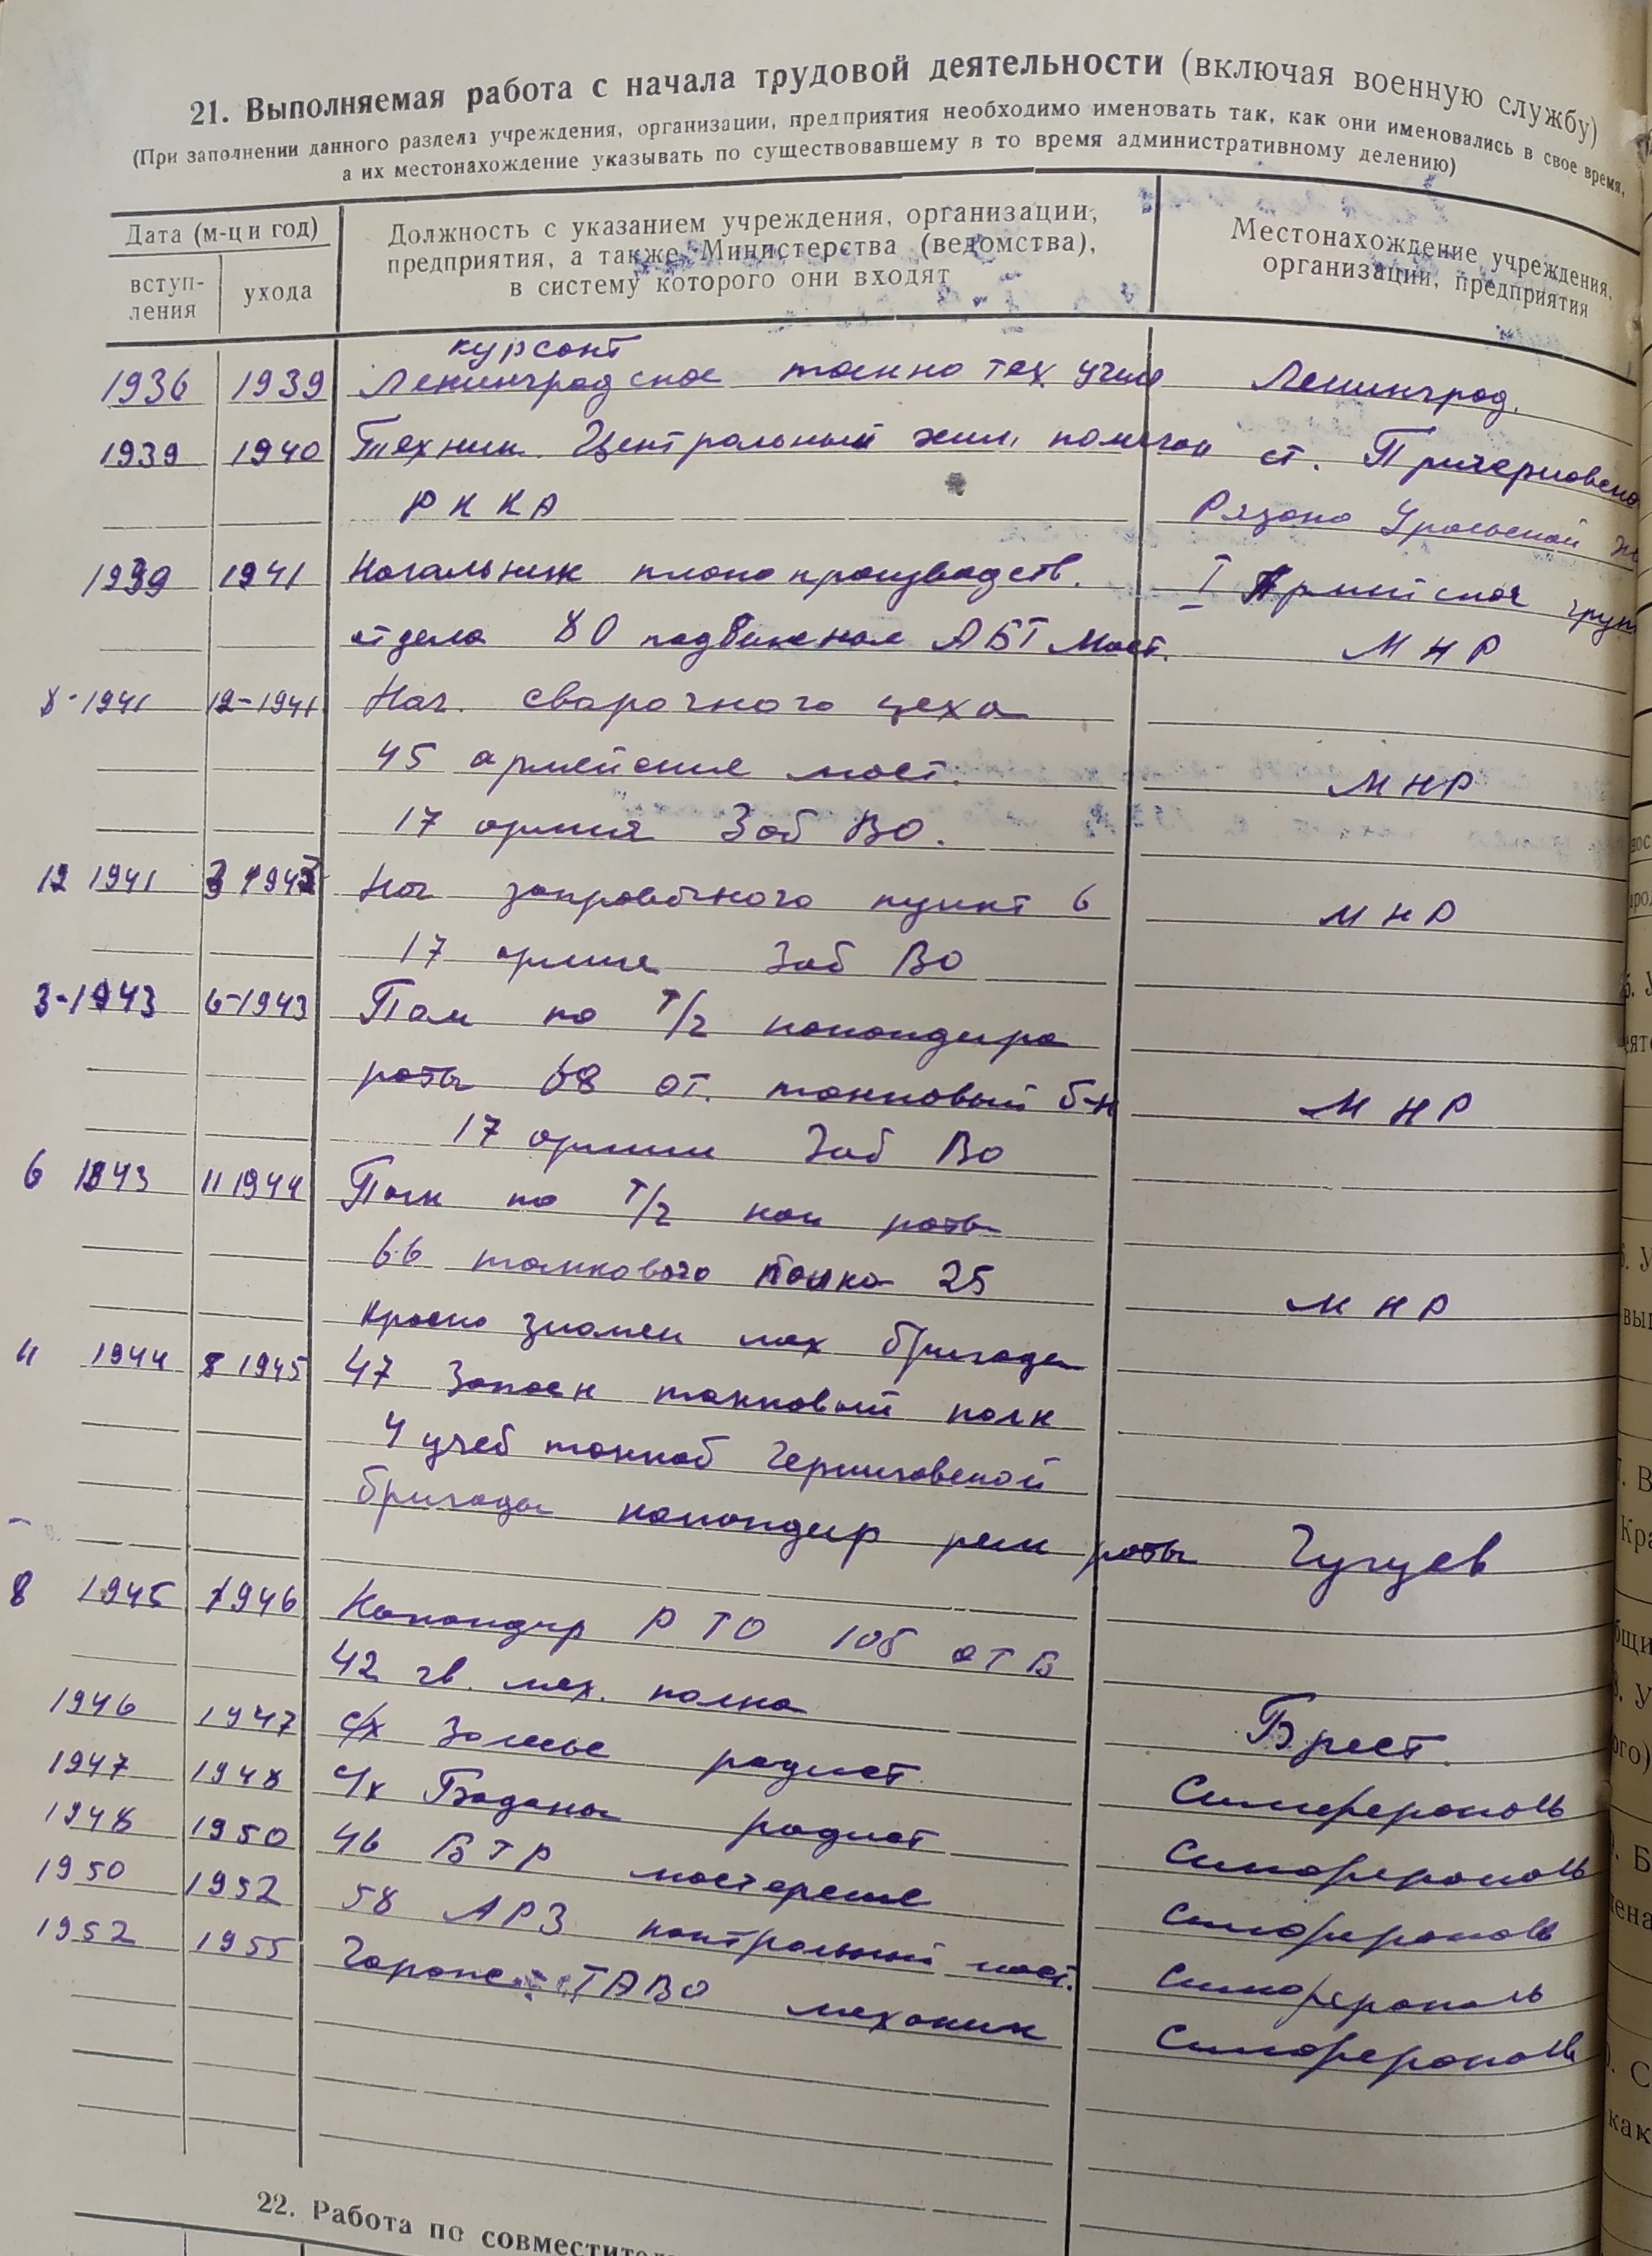 21. Выполняемая работа с начала трудовой деятельности (включая военную службу)
(При заполнении данного раздела учреждения, организации, предприятия необходимо именовать так, как они именовались в свое время,
а их местонахождение указывать по существовавшему в то время административному делению)
Дата (м-ц и год)
вступ-
ления
ухода
Должность с указанием учреждения, организации,
предприятия, а также Министерства (ведомства),
в систему которого они входят
Местонахождение учреждения,
организации, предприятия
курсант
1936 1939 Ленинградское танко тех учил Ленинград.
1939 1940 Техник. Центральный хим. полигон ст. Причерновская
РККА Рязано Уральской
1939 1941 Начальник плано производств. I Армейская груп
отдела 80 подвижная АБТ маст. МНР
8-1941 12-1941 Нач. сварочного цеха
45 армейские маст. МНР
17 армия Заб ВО.
12 1941 3 1943 Нач заправочного пункт 6 МНР
17 армия Заб ВО
3-1943 6-1943 Пом по т/ч командира
роты 68 от. танковый б-н МНР
17 армии Заб ВО
6 1943 11 1944 Пом по т/ч ком роты
66 танкового полка 25 МНР
Красно знамен мех бригады
11 1944 8 1945 47 Запасн танковый полк
4 учеб танков Черниговской
бригады командир рем роты Чугуев
8 1945 1946 Командир РТО 105 ОТБ
42 гв. мех. полка Брест.
1946 1947 с/х Залесье радист Симферополь
1947 1948 с/х Баданы радист Симферополь
1948 1950 46 БТР мастерские Симферополь
1950 1952 58 АРЗ контрольный маст. Симферополь
1952 1955 ТАВО механик Симферополь
22. Работа по совместител